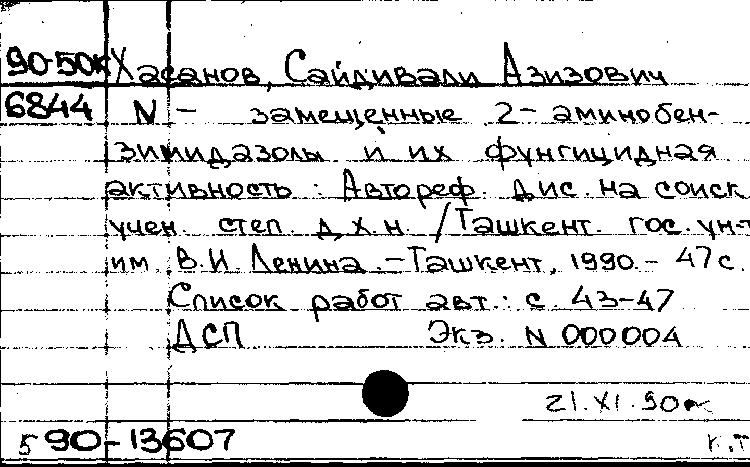 90-50к Хасанов, Сайдивали Азизович
6844 N- замещенные 2-аминобен-
зимидазолы и их фунгицидная
активность : Автореф. дис. на соиск.
учен. степ. д.х.н. /Ташкент. гос. ун-т
им. В.И. Ленина.-Ташкент, 1990.- 47с.
Список работ авт.: с. 43-47
ДСП Экз. N 000004
21.XI.90
5 90-13607 К.Т